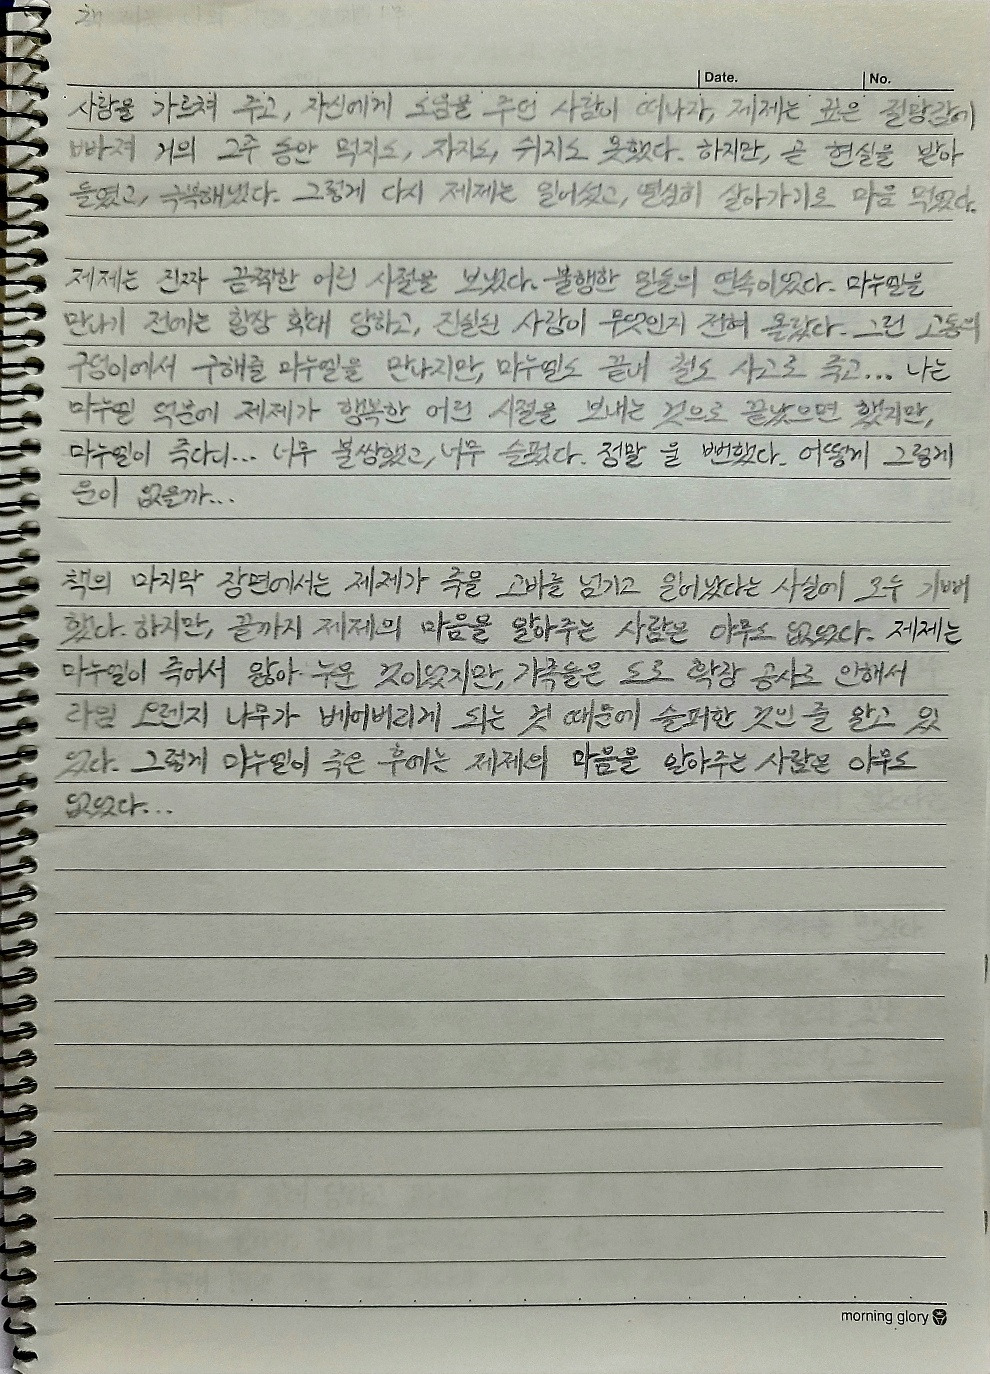 책
Date.
No.
사람을 가르쳐 주고, 자신에게 도움을 주던 사람이 떠나자, 제제는 깊은 절망감에
빠져 거의 2주 동안 먹지도, 자지도, 쉬지도 못했다. 하지만, 곧 현실을 받아
들였고, 극복해냈다. 그렇게 다시 제제는 일어섰고, 열심히 살아가기로 마음 먹었다.
제제는 진짜 끔찍한 어린 시절을 보냈다. 불행한 일들의 연속이었다. 마누엘을
만나기 전에는 항상 학대 당하고, 진실된 사랑이 무엇인지 전혀 몰랐다. 그런 고통의
구덩이에서 구해줄 마누엘을 만나지만, 마누엘도 끝내 철도 사고로 죽고... 나는
마누엘 덕분에 제제가 행복한 어린 시절을 보내는 것으로 끝났으면 했지만,
마누엘이 죽다니... 너무 불쌍했고, 너무 슬펐다. 정말 울 뻔했다. 어떻게 그렇게
운이 없을까...
책의 마지막 장면에서는 제제가 죽을 고비를 넘기고 일어났다는 사실에 모두 기뻐
했다. 하지만, 끝까지 제제의 마음을 알아주는 사람은 아무도 없었다. 제제는
마누엘이 죽어서 앓아 누운 것이었지만, 가족들은 도로 확장 공사로 인해서
라임 오렌지 나무가 베어버리게 되는 것 때문에 슬퍼한 것인 줄 알고 있
었다. 그렇게 마누엘이 죽은 후에는 제제의 마음을 알아주는 사람은 아무도
없었다...
morning glory